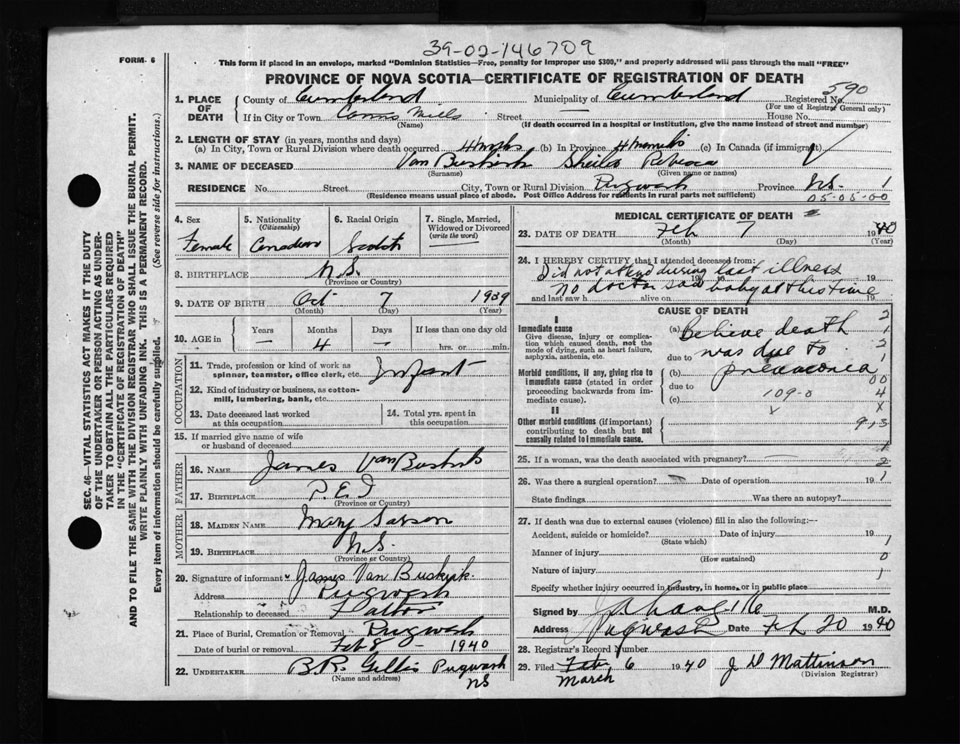 39-02-146709
FORM 6
This form if placed in an envelope, marked "Dominion Statistics—Free, penalty for improper use $300," and properly addressed will pass through the mail "FREE"
PROVINCE OF NOVA SCOTIA—CERTIFICATE OF REGISTRATION OF DEATH
SEC. 46 VITAL STATISTICS ACT MAKES IT THE DUTY
OF THE UNDERTAKER OR PERSON ACTING AS UNDER-
TAKER TO OBTAIN ALL THE PARTICULARS REQUIRED
IN THE "CERTIFICATE OF REGISTRATION OF DEATH"
AND TO FILE THE SAME WITH THE DIVISION REGISTRAR WHO SHALL ISSUE THE BURIAL PERMIT.
WRITE PLAINLY WITH UNFADING INK. THIS IS A PERMANENT RECORD.
Every item of information should be carefully supplied. (See reverse side for instructions.)
1. PLACE OF DEATH County of Cumberland Municipality of Cumberland Registered No. 590
(For use of Registrar General only)
If in City or Town Mills Street House No.
(Name) (If death occurred in a hospital or institution, give the name instead of street and number)
2. LENGTH OF STAY (in years, months and days)
(a) In City, Town or Rural Division where death occurred 4 mths (b) In Province 4 months (c) In Canada (if immigrant)
3. NAME OF DECEASED Van Buskirk Sheila Rebecca
(Surname) (Given name or names)
RESIDENCE No. Street City, Town or Rural Division Pugwash Province N.S. 1
(Residence means usual place of abode. Post Office Address for residents in rural parts not sufficient) 05-05-00
4. Sex Female
5. Nationality (Citizenship) Canadian
6. Racial Origin Scotch
7. Single, Married, Widowed or Divorced (write the word)
8. BIRTHPLACE N.S.
(Province or Country)
9. DATE OF BIRTH Oct 7 1939
(Month) (Day) (Year)
10. AGE in Years — Months 4 Days — If less than one day old hrs. or min.
OCCUPATION
11. Trade, profession or kind of work as spinner, teamster, office clerk, etc. Infant
12. Kind of industry or business, as cotton-mill, lumbering, bank, etc.
13. Date deceased last worked at this occupation
14. Total yrs. spent in this occupation
15. If married give name of wife or husband of deceased
FATHER
16. NAME James Van Buskirk
17. BIRTHPLACE P.E.I
(Province or Country)
MOTHER
18. MAIDEN NAME Mary
19. BIRTHPLACE N.S.
(Province or Country)
20. Signature of informant James Van Buskirk
Address Pugwash
Relationship to deceased Father
21. Place of Burial, Cremation or Removal Pugwash
Date of burial or removal Feb 8 1940
22. UNDERTAKER B.R. Gillis Pugwash
(Name and address) NS
MEDICAL CERTIFICATE OF DEATH
23. DATE OF DEATH Feb 7 1940
(Month) (Day) (Year)
24. I HEREBY CERTIFY that I attended deceased from:
Did not attend during last illness 19
no doctor saw baby at this time
and last saw h alive on 19
CAUSE OF DEATH
I
Immediate cause
Give disease, injury or complication which caused death, not the mode of dying, such as heart failure, asphyxia, asthenia, etc.
(a) Believe death
due to was due to
Morbid conditions, if any, giving rise to immediate cause (stated in order proceeding backwards from immediate cause).
(b) pneumonia
due to 109-0
(c)
II
Other morbid conditions (if important) contributing to death but not causally related to immediate cause.
25. If a woman, was the death associated with pregnancy?
26. Was there a surgical operation? Date of operation 19
State findings Was there an autopsy?
27. If death was due to external causes (violence) fill in also the following:—
Accident, suicide or homicide? Date of injury 19
(State which)
Manner of injury
(How sustained)
Nature of injury
Specify whether injury occurred in industry, in home, or in public place
Signed by M.D.
Address Pugwash Date Feb 20 1940
28. Registrar's Record Number
29. Filed Feb 6 1940 J D Mattinson
March (Division Registrar)